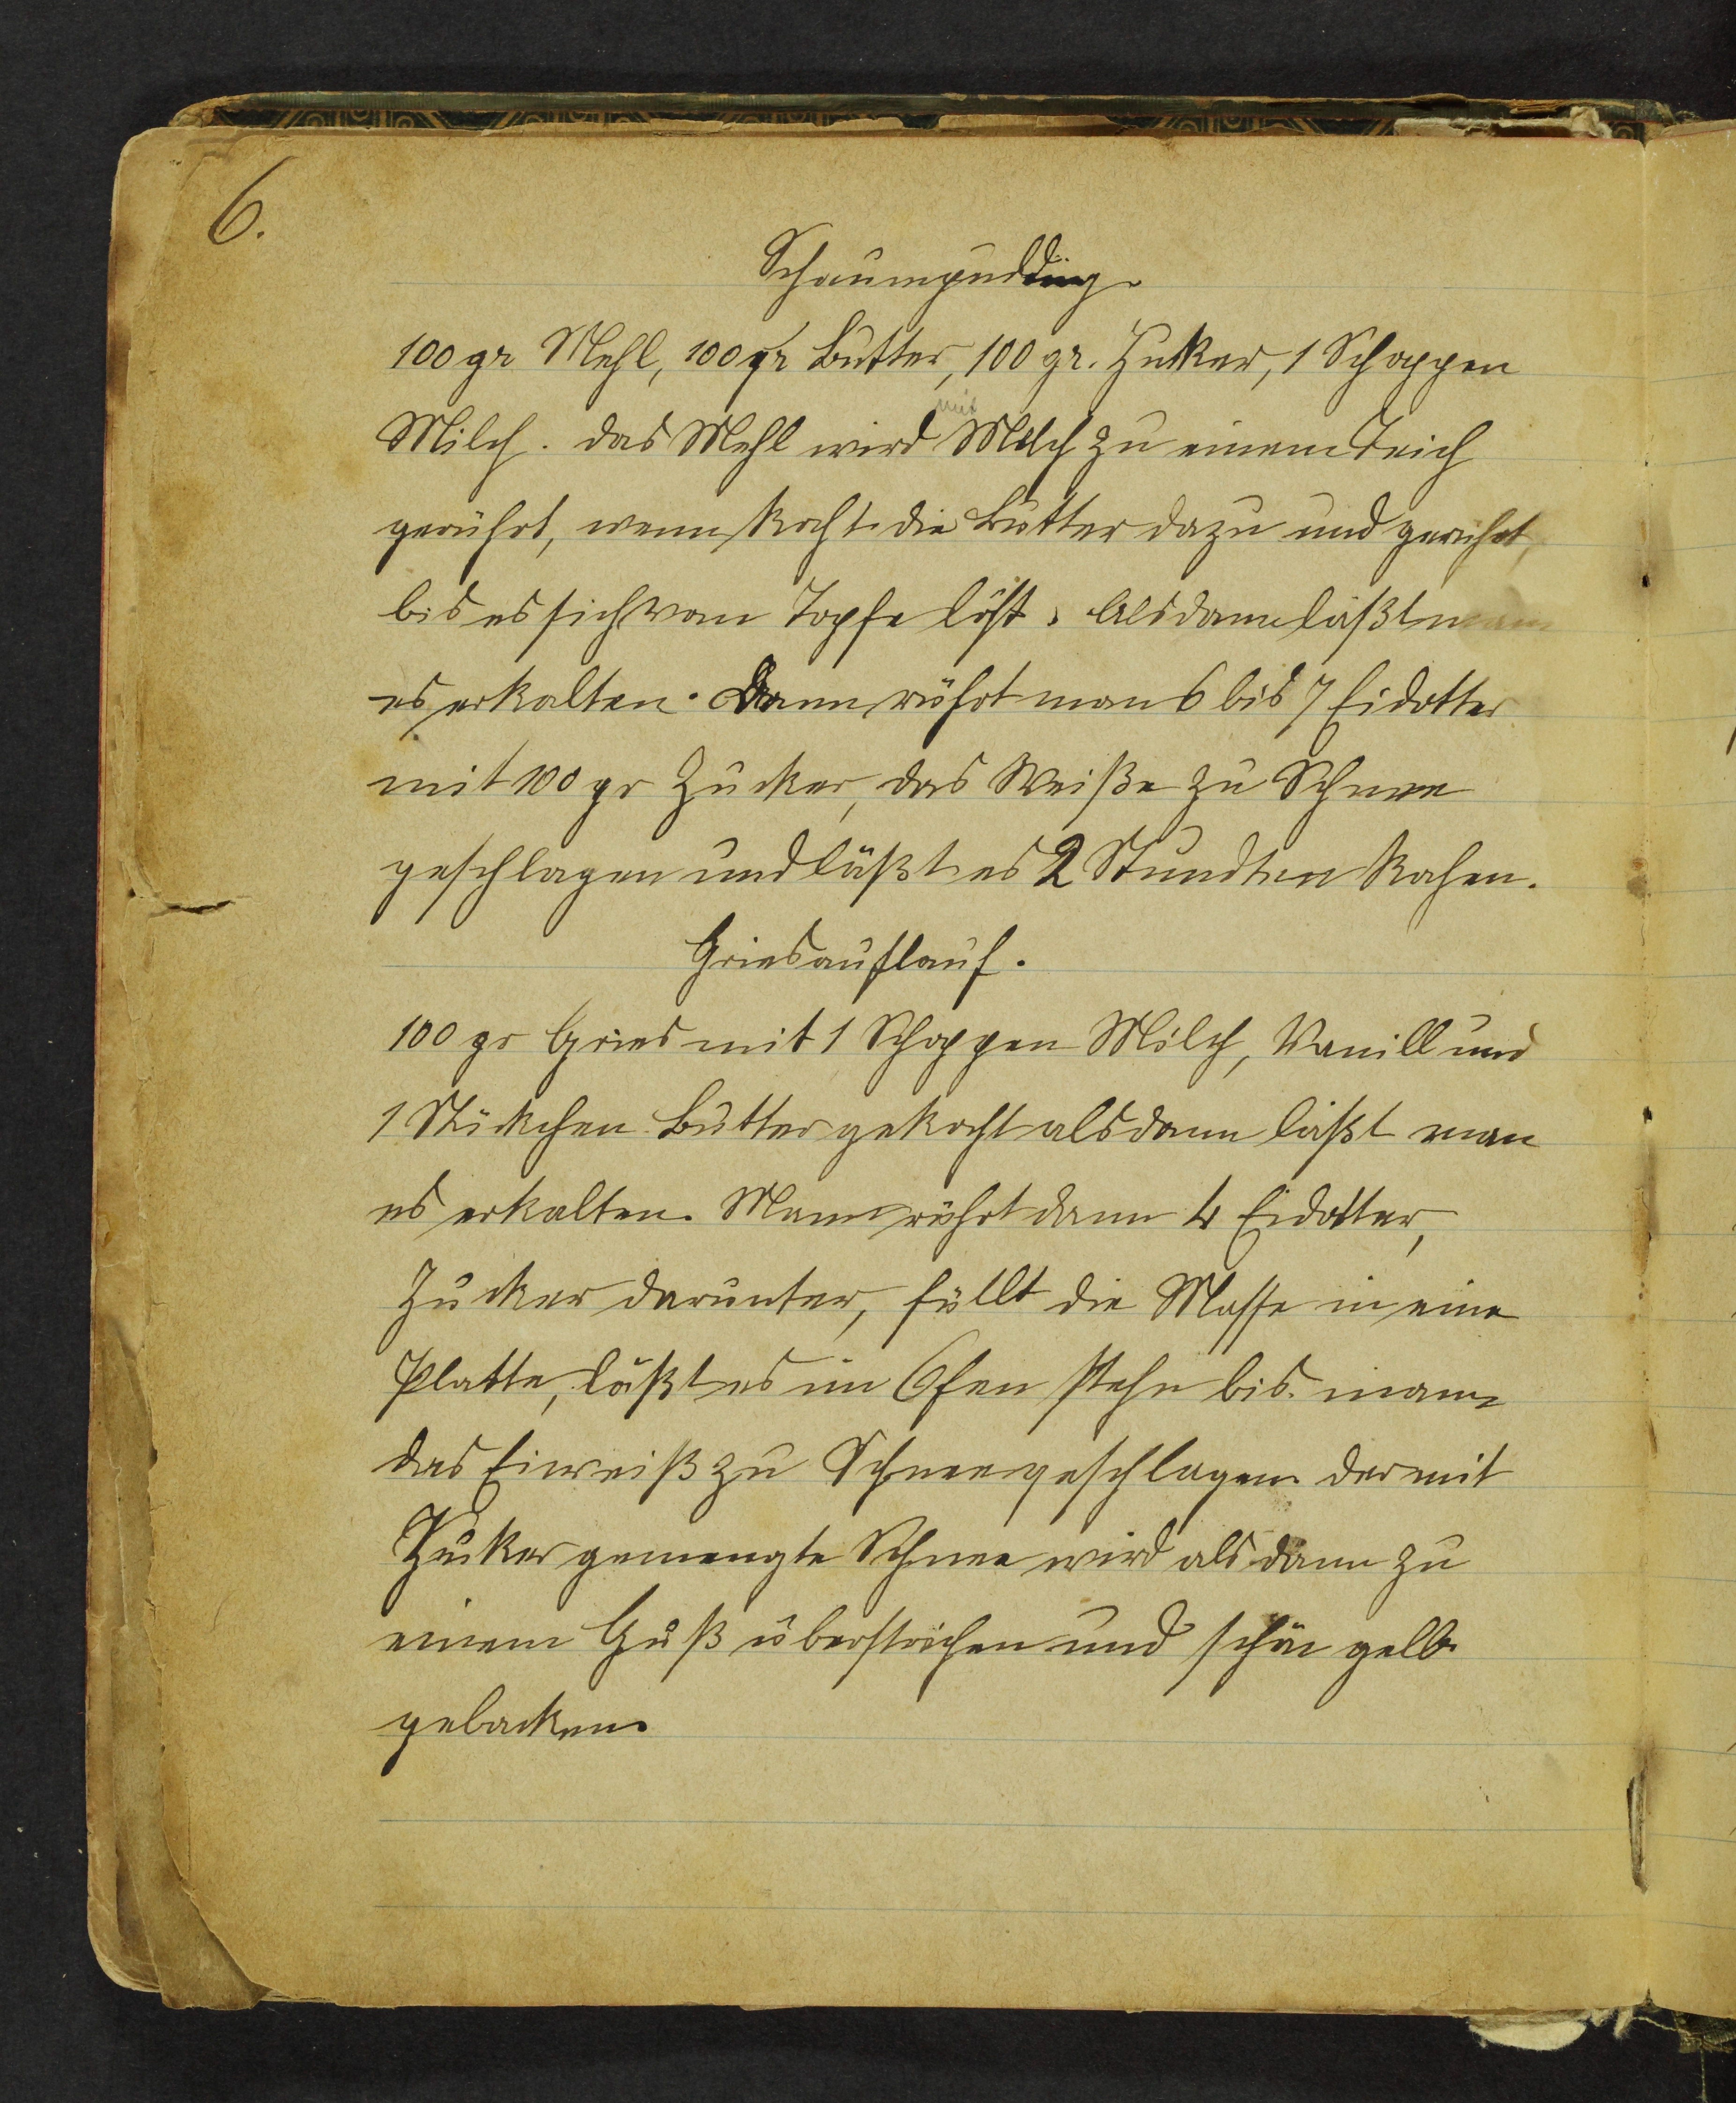 6.
Schaumpudding.
100 gr Mehl, 100 gr Butter, 100 gr. Zuker, 1 Schoppen
mit
Milch. das Mehl wird Milch zu einem Teich
gerührt, wenn kocht die Butter dazu und gerührt,
bis es sich vom Topfe löst. Alsdann läßt man
es erkalten. Dann rührt man 6 bis 7 Eidotter
mit 100 gr Zucker, das Weiße zu Schnee
geschlagen und läßt es 2 Stundten kochen.
Griesauflauf.
100 gr Gries mit 1 Schoppen Milch, Vanill und
1 Stükchen Butter gekocht alsdann läßt man
es erkalten. Mann rührt dann 4 Eidotter,
Zucker darunter, füllt die Masse in eine
Platte, läßt es im Ofen stehn bis mann
das Eiweiß zu Schnee geschlagen. der mit
Zuker gemengte Schnee wird alsdann zu
einem Guß überstrichen und schön gelb
gebacken.